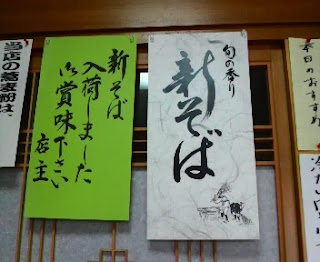 本日のおすすめ
旬の香り
新そば
新そば
入荷しました
御賞味下さい
店主
当店の蕎麦粉は、